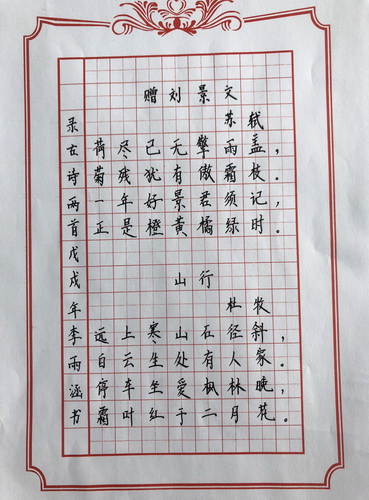 赠刘景文
苏轼
荷尽已无擎雨盖，
菊残犹有傲霜枝。
一年好景君须记，
正是橙黄橘绿时。
山行
杜牧
远上寒山石径斜，
白云生处有人家。
停车坐爱枫林晚，
霜叶红于二月花。
录古诗两首戊戌年李雨涵书